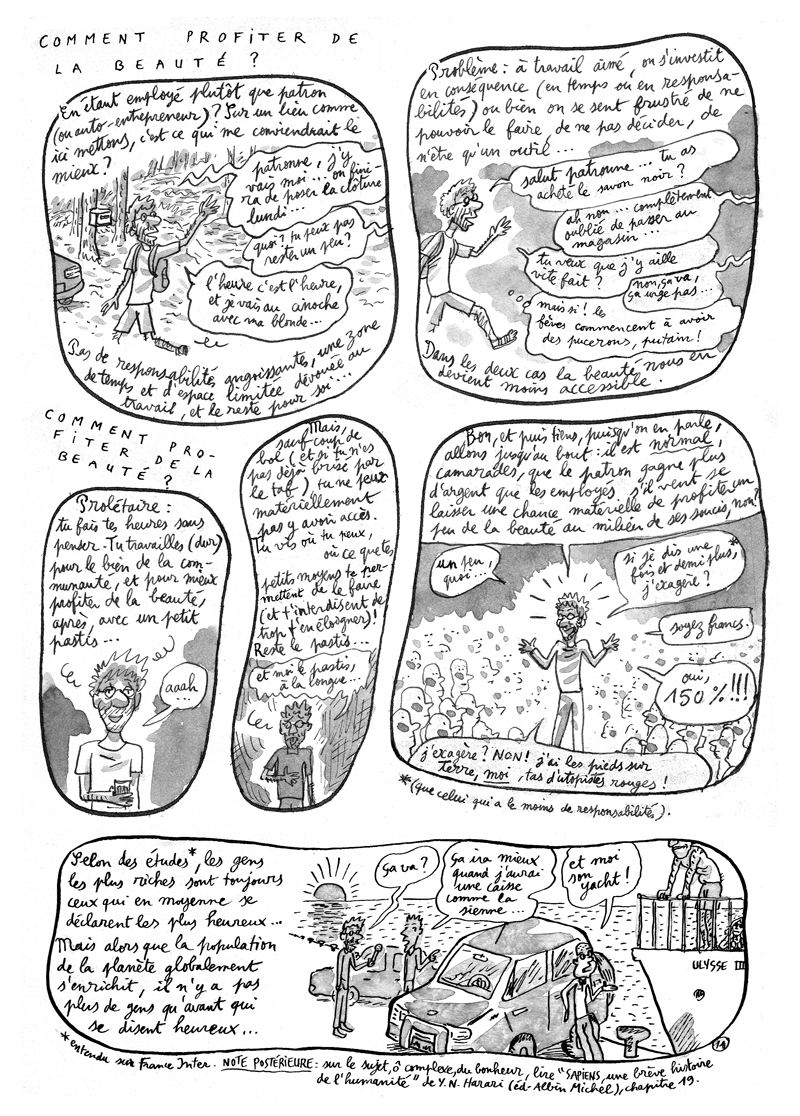 COMMENT PROFITER DE
LA BEAUTÉ ?
En étant employé plutôt que patron
(ou auto-entrepreneur) ? Sur un lieu comme
ici mettons, c'est ce qui me conviendrait le
mieux ?
patronne, j'y
vais moi... on fini-
ra de poser la clôture
lundi...
quoi ? tu peux pas
rester un peu ?
l'heure c'est l'heure,
et je vais au cinoche
avec ma blonde...
Pas de responsabilités angoissantes, une zone
de temps et d'espace limitée dévouée au
travail, et le reste pour soi...
Problème : à travail aimé, on s'investit
en conséquence (en temps ou en responsa-
bilités) ou bien on se sent frustré de ne
pouvoir le faire, de ne pas décider, de
n'être qu'un outil...
salut patronne... tu as
acheté le savon noir ?
ah non... complètement
oublié de passer au
magasin...
tu veux que j'y aille
vite fait ?
non, ça va,
ça urge pas...
mais si ! les
fèves commencent à avoir
des pucerons, putain !
Dans les deux cas la beauté nous en
devient moins accessible.
COMMENT PRO-
FITER DE LA
BEAUTÉ ?
Prolétaire :
tu fais tes heures sans
penser. Tu travailles (dur)
pour le bien de la com-
munauté, et pour mieux
profiter de la beauté,
après, avec un petit
pastis...
aaah
...
Mais,
sauf coup de
bol (et si tu n'es
pas déjà brisé par
le taf) tu ne peux
matériellement
pas y avoir accès.
Tu vis où tu peux,
où ce que tes
petits moyens te per-
mettent de le faire
(et t'interdisent de
trop t'en éloigner) !
Reste le pastis...
et moi le pastis,
à la longue...
Bon, et puis tiens, puisqu'on en parle,
allons jusqu'au bout : il est normal,
camarades, que le patron gagne plus
d'argent que les employés s'il veut se
laisser une chance matérielle de profiter un
peu de la beauté au milieu de ses soucis, non ?
un peu,
quoi...
si je dis une
fois et demi plus,*
j'exagère ?
soyez francs.
oui,
150 % !!!
j'exagère ? NON ! j'ai les pieds sur
terre, moi, tas d'utopistes rouges !
*(que celui qui a le moins de responsabilité).
Selon des études*, les gens
les plus riches sont toujours
ceux qui en moyenne se
déclarent les plus heureux...
Mais alors que la population
de la planète globalement
s'enrichit, il n'y a pas
plus de gens qu'avant qui
se disent heureux...
ça va ?
ça ira mieux
quand j'aurai
une caisse
comme la
sienne...
et moi
son
yacht !
ULYSSE III
*entendu sur France Inter. NOTE POSTÉRIEURE : sur le sujet, ô complexe, du bonheur, lire "SAPIENS, une brève histoire
de l'humanité" de Y.N. Harari (éd. Albin Michel), chapitre 19.